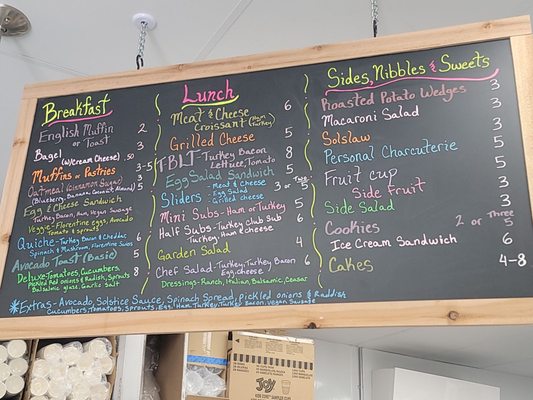 Breakfast
English Muffin 2
or Toast
Bagel (w/cream cheese) .50 3
Muffins or Pastries 3-5
Oatmeal (Cinnamon Sugar) 5
(Blueberry, Banana, Coconut, Almond)
Egg & Cheese Sandwich 5
Turkey Bacon, Ham, Vegan Sausage
Veggie - Florentine eggs, Avocado
Tomato & sprouts
Quiche - Turkey Bacon & Cheddar 6
Spinach & Mushroom, Florentine Swiss
Avocado Toast (Basic) 5
Deluxe - Tomatoes, Cucumbers, 8
Pickled red onions & Radish, Sprouts
Balsamic glaze, Garlic Salt
Lunch
Meat & Cheese 6
Croissant (Ham, Turkey)
Grilled Cheese 5
TBLT - Turkey Bacon 8
Lettuce, Tomato
Egg Salad Sandwich 5
Sliders - Meat & Cheese 2 or 3
- Egg Salad
- Grilled cheese
Mini Subs - Ham or Turkey 5
Half Subs - Turkey Club Sub 6
Turkey Ham & cheese
Garden Salad 4
Chef Salad - Turkey, Turkey Bacon 6
Egg, cheese
Dressings - Ranch, Italian, Balsamic, Ceasar
Sides, Nibbles & Sweets
Roasted Potato Wedges 3
Macaroni Salad 3
Solslaw 3
Personal Charcuterie 5
Fruit cup 5
Side fruit 3
Side Salad 3
Cookies 2 or Three 5
Ice Cream Sandwich 6
Cakes 4-8
*Extras - Avocado, Solstice Sauce, Spinach Spread, pickled onions & Raddish
Cucumbers, Tomatoes, Sprouts, Egg, Ham, Turkey, Turkey Bacon, Vegan Sausage
JOY